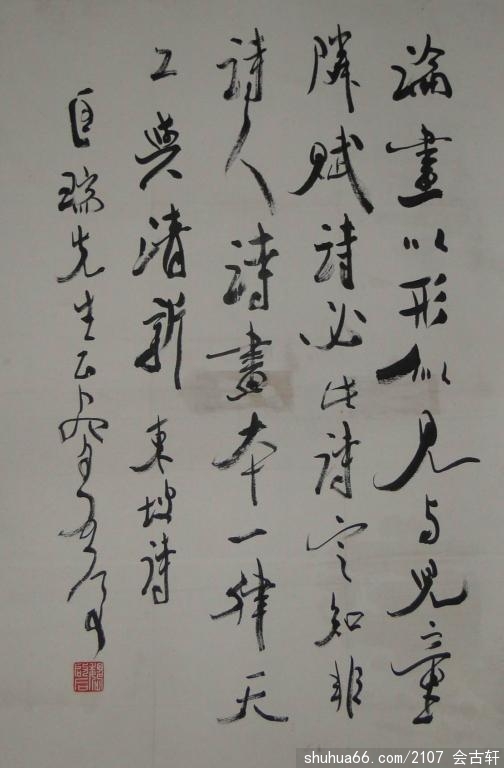 論畫以形似見与兒童
隣賦詩必此詩定知非
詩人詩畫本一律天
工與清新 東坡詩
匡瑞先生正
shuhua66.com/2107 会古轩